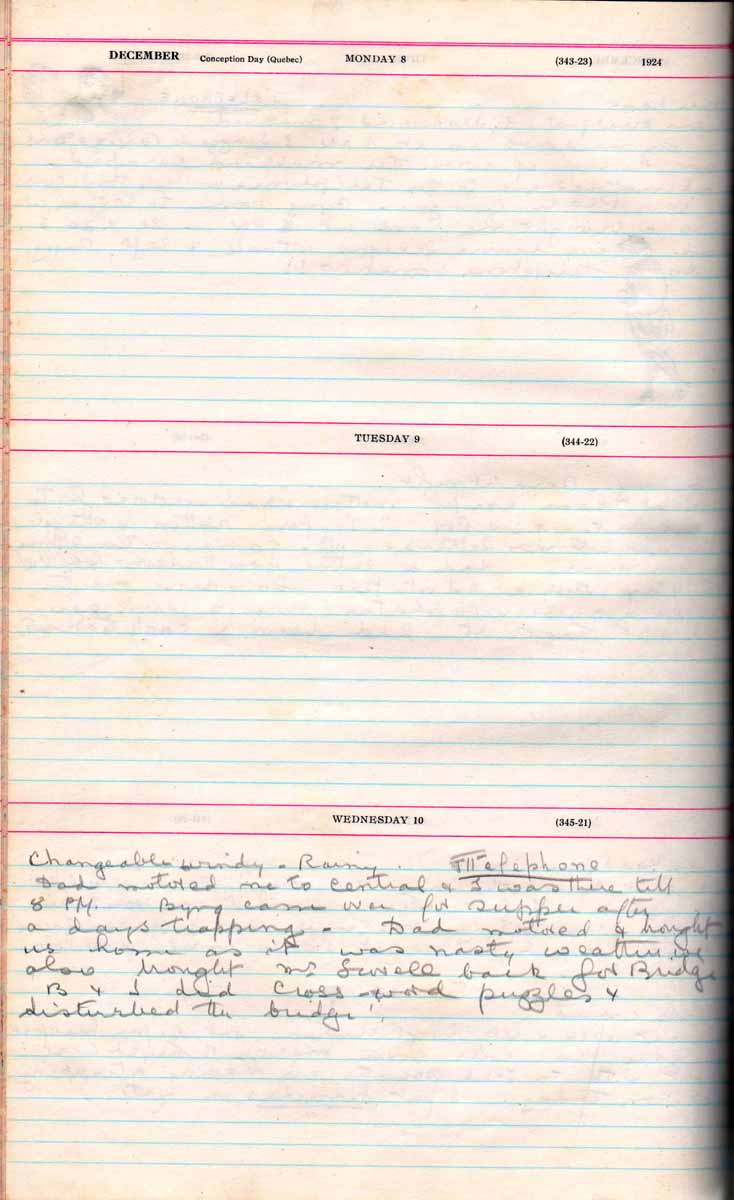 DECEMBER Conception Day (Quebec) MONDAY 8 (343-23) 1924
TUESDAY 9 (344-22)
WEDNESDAY 10 (345-21)
Changeable windy - Rainy. Telephone
Dad motored me to Central & I was there till
8 PM. Byng came over for supper after
a days trapping - Dad motored & brought
us home as it was nasty weather, we
also brought Mr Sewell back for Bridge
B & I did Cross-word puzzles &
disturbed the bridge!